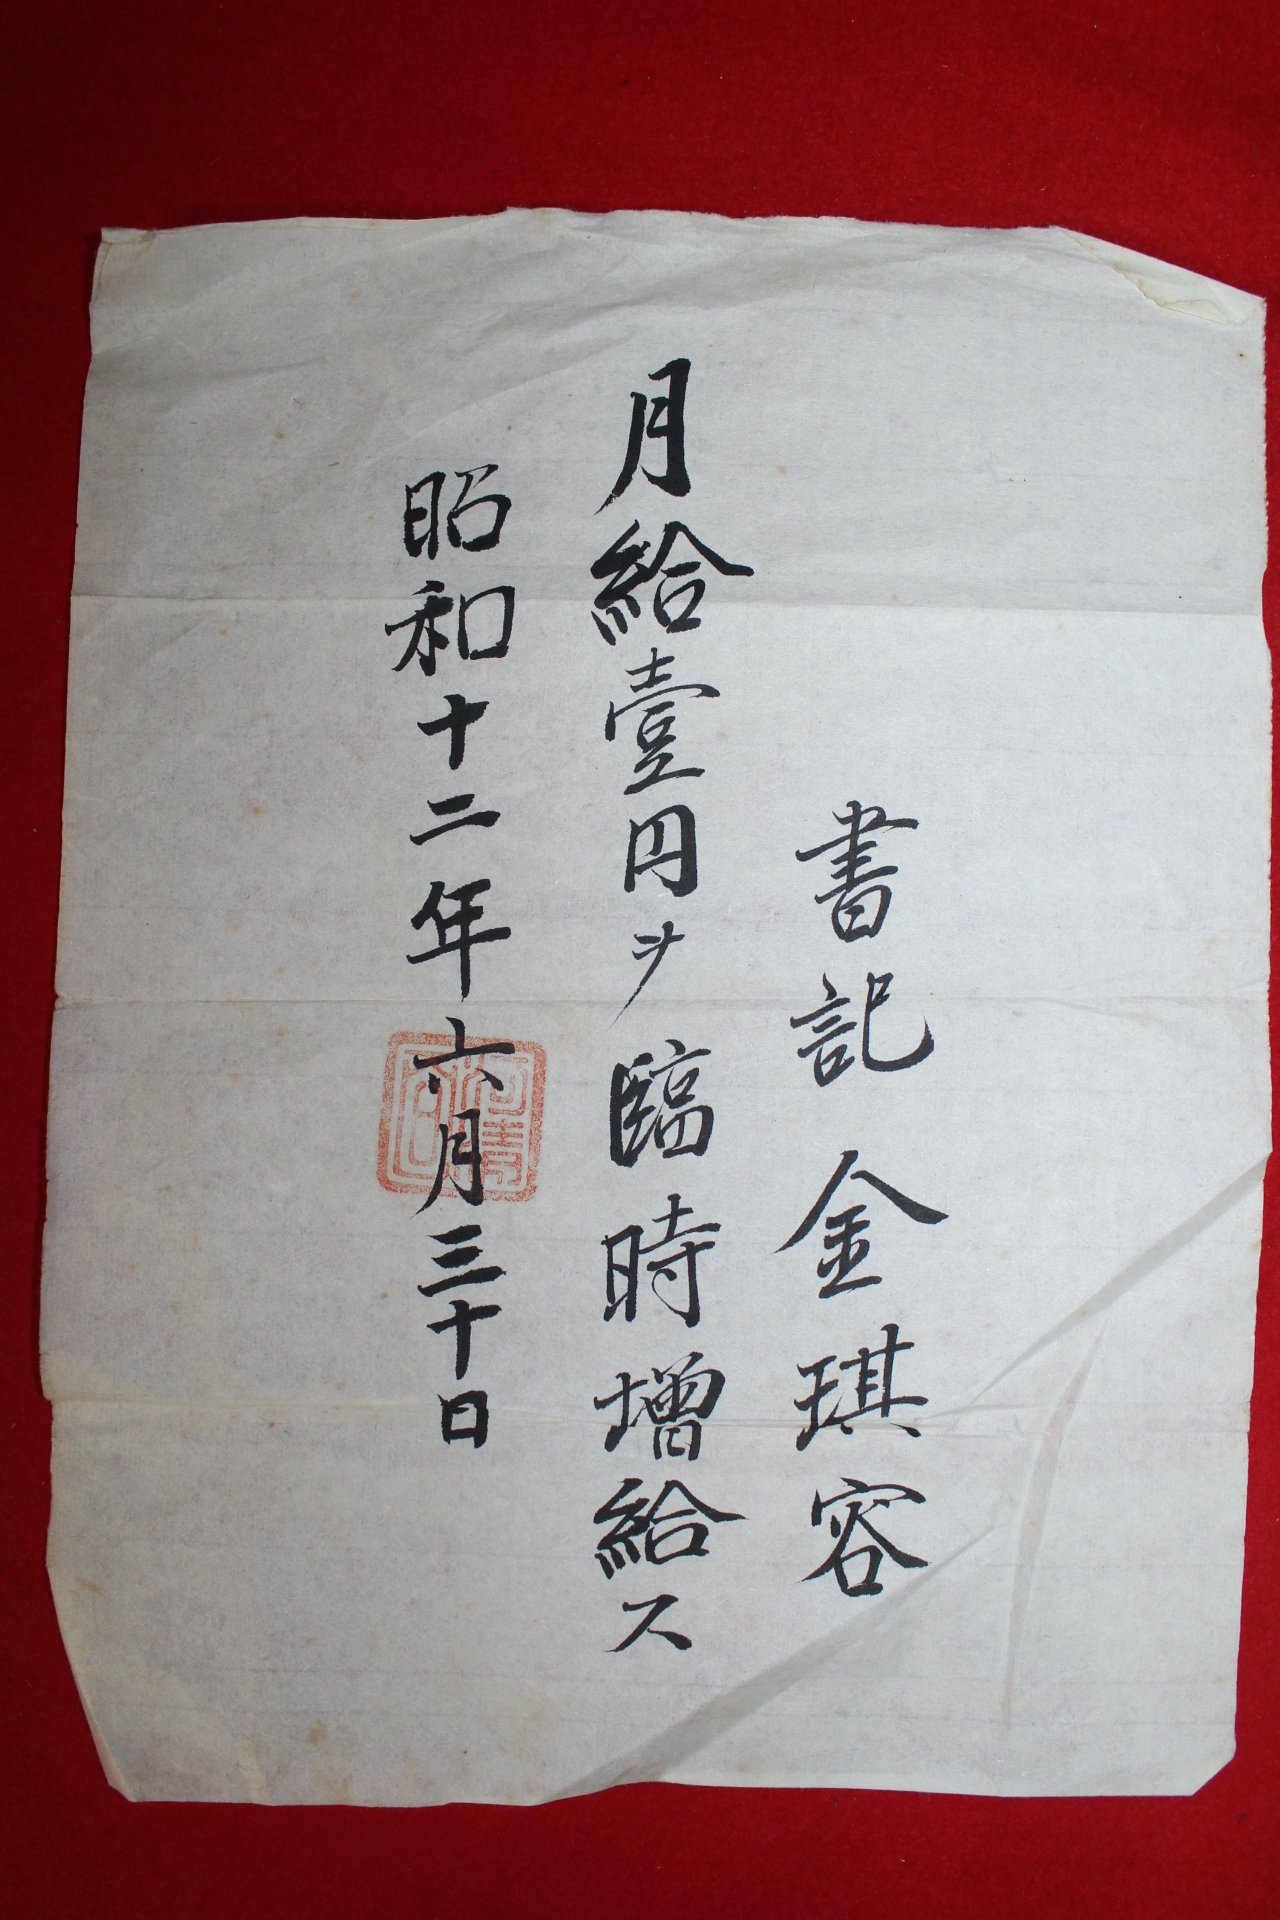 書記 金琪容
月給壹円ヲ臨時増給ス
昭和十二年六月三十日